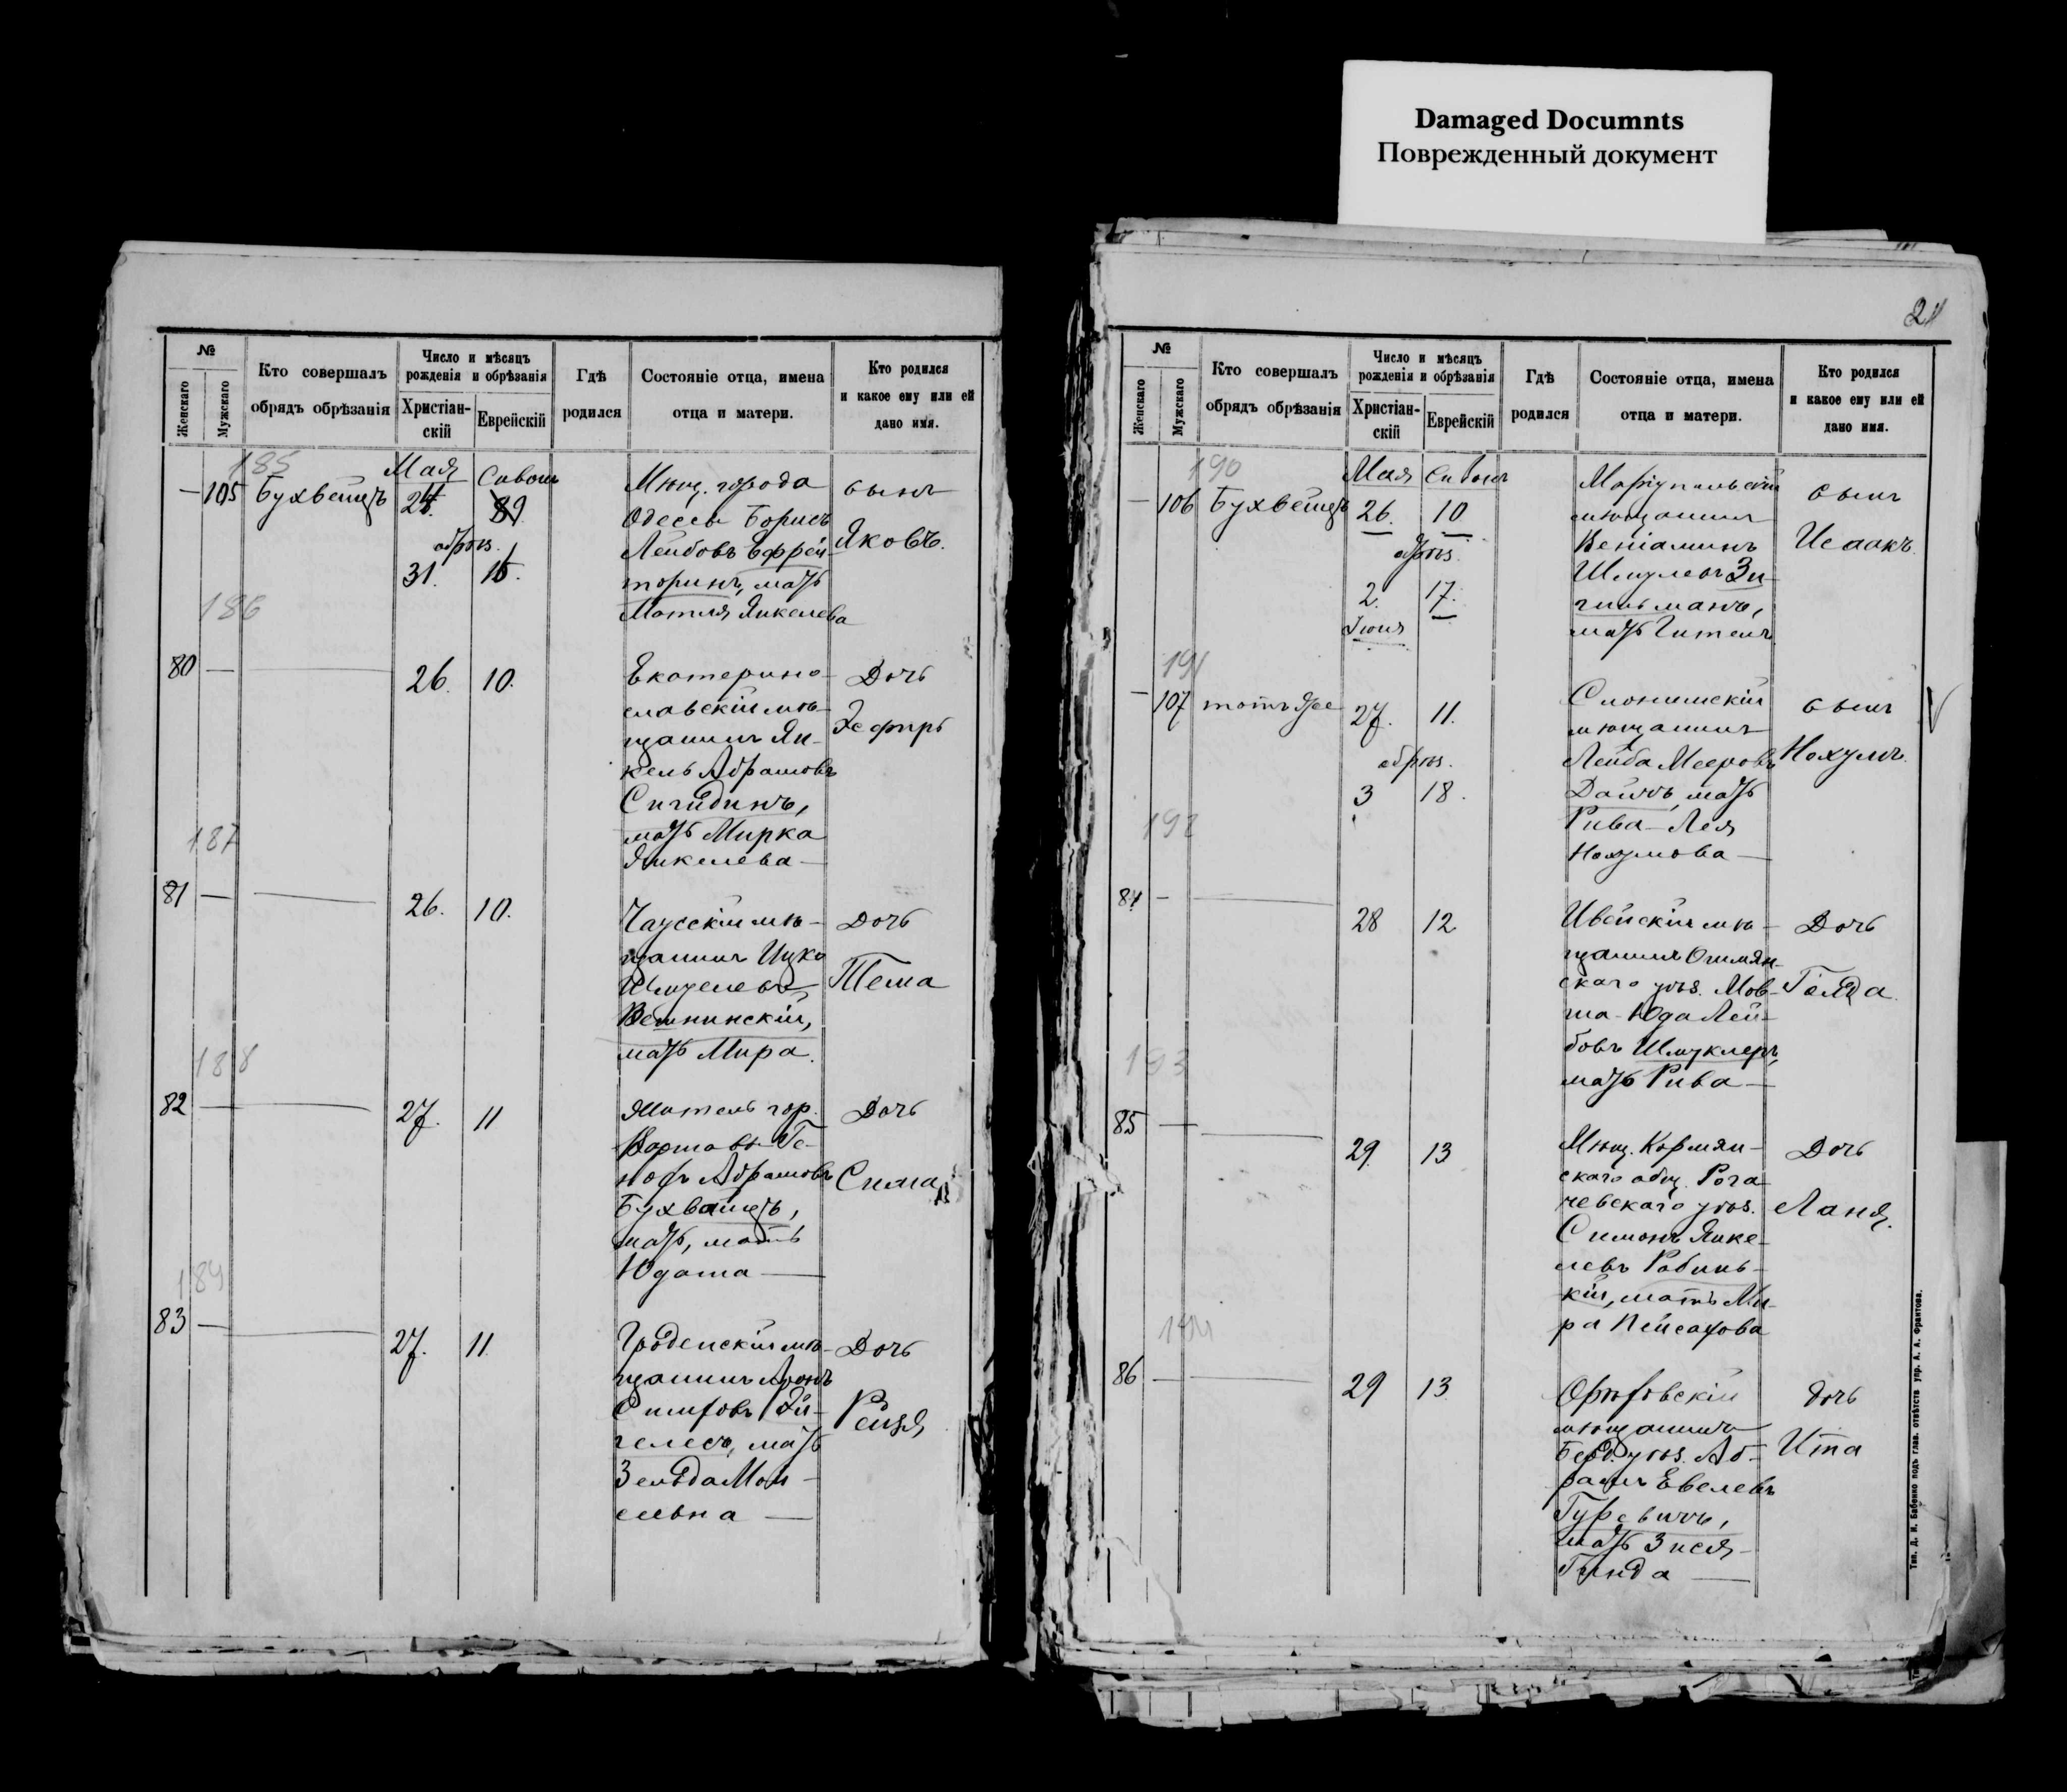 Damaged Documnts
Поврежденный документ
№
Женскаго
Мужскаго
Кто совершалъ
обрядъ обрѣзанія
Число и мѣсяцъ
рожденія и обрѣзанія
Христіан-
скій
Еврейскій
Гдѣ
родился
Состояніе отца, имена
отца и матери.
Кто родился
и какое ему или ей
дано имя.
185
Мая Сивонъ
— 105 Бухвейцъ
обрѣз.
31. 15.
Мѣщ. города
Одессы Борисъ
Лейбовъ Ефрей-
торинъ, мать
Мотля Янкелева
сынъ
Яковъ.
186
80 — 26. 10.
Екатерино-
славскій мѣ-
щанинъ Ян-
кель Абрамовъ
мать Мирка
Янкелева —
Дочь
Эсфирь
187
81 — 26. 10.
Чаусскій мѣ-
щанинъ Ицко
Шмулевъ
мать Мира.
Дочь
Тема
188
82 — 27. 11
Житель гор.
Варшавы Ге-
нохъ Абрамовъ
Бухвайцъ,
мать, мать
Юдаша —
Дочь
Сима
189
83 — 27. 11.
Гродненскій мѣ-
щанинъ Аронъ
гелесъ, мать
Зельда Мои-
сеевна —
Дочь
Рейзя
21
№
Женскаго
Мужскаго
Кто совершалъ
обрядъ обрѣзанія
Число и мѣсяцъ
рожденія и обрѣзанія
Христіан-
скій
Еврейскій
Гдѣ
родился
Состояніе отца, имена
отца и матери.
Кто родился
и какое ему или ей
дано имя.
190
Мая Сивонъ
— 106 Бухвейцъ 26. 10
обрѣз.
2. 17.
Іюня
Маріупольскій
мѣщанинъ
Веніаминъ
Шмулевъ Зи-
гильманъ,
мать Гитель
сынъ
Исаакъ.
191
— 107 тотъ же 27. 11.
обрѣз.
3 18.
Слонимскій
мѣщанинъ
Лейба Мееровъ
мать
Рива-Лея
Нохумова —
сынъ
Нохумъ.
192
84 — 28 12
Ивейскій мѣ-
щанинъ Ошмян-
скаго уѣз. Мов-
ша-Юда Лей-
бовъ Шмуклеръ,
мать Рива —
Дочь
Голда.
193
85 — 29. 13
Мѣщ. Кормян-
скаго общ. Рога-
чевскаго уѣз.
Симонъ Янке-
левъ Рабинь-
кій, мать Ми-
ра Пейсахова
Дочь
Ланя.
194
86 — 29 13.
мѣщанинъ
Берд. уѣз. Аб-
рамъ Евелевъ
Гуревичъ,
мать Зися-
Гинда —
Дочь
Ита
Тип. Д. И. Бабенко подъ глав. отвѣтств. упр. А. А. Франтова.